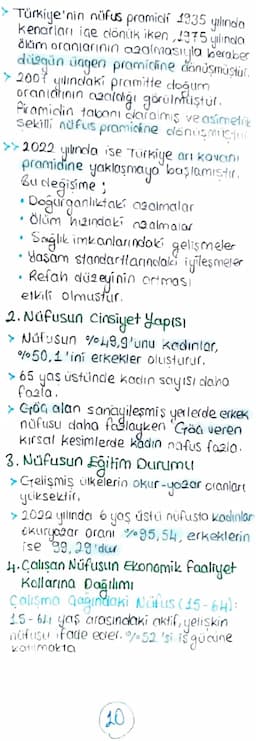 > Türkiye'nin nüfus pramidi 1935 yılında
kenarları içe dönük iken, 1975 yılında
ölüm oranlarının azalmasıyla beraber
düzgün üçgen pramidine dönüşmüştür.
> 2007 yılındaki pramitte doğum
oranlığının azaldığı görülmüştür.
Pramidin tabanı daralmış ve asimetrik
şekilli nüfus pramidine dönüşmüştür
>> 2022 yılında ise Türkiye arı kovanı
pramidine yaklaşmaya başlamıştır.
Bu değişime ;
• Doğurganlıktaki azalmalar
• Ölüm hızındaki azalmalar
• Sağlık imkanlarındaki gelişmeler
• Yaşam standartlarındaki iyileşmeler
• Refah düzeyinin artması
etkili olmuştur.
2. Nüfusun Cinsiyet Yapısı
> Nüfusun %49,9'unu kadınlar,
%50,1'ini erkekler oluşturur.
> 65 yaş üstünde kadın sayısı daha
fazla.
> Göç alan sanayileşmiş yerlerde erkek
nüfusu daha fazlayken Göç veren
kırsal kesimlerde kadın nüfus fazla.
3. Nüfusun Eğitim Durumu
> Gelişmiş ülkelerin okur-yazar oranları
yüksektir.
> 2022 yılında 6 yaş üstü nüfusta kadınlar
okuryazar oranı %95,54, erkeklerin
ise 99,29'dur
4. Çalışan Nüfusun Ekonomik Faaliyet
Kollarına Dağılımı
Çalışma Çağındaki Nüfus (15-64):
15-64 yaş arasındaki aktif, yetişkin
nüfusu ifade eder. %52'si işgücüne
katılmakta
20